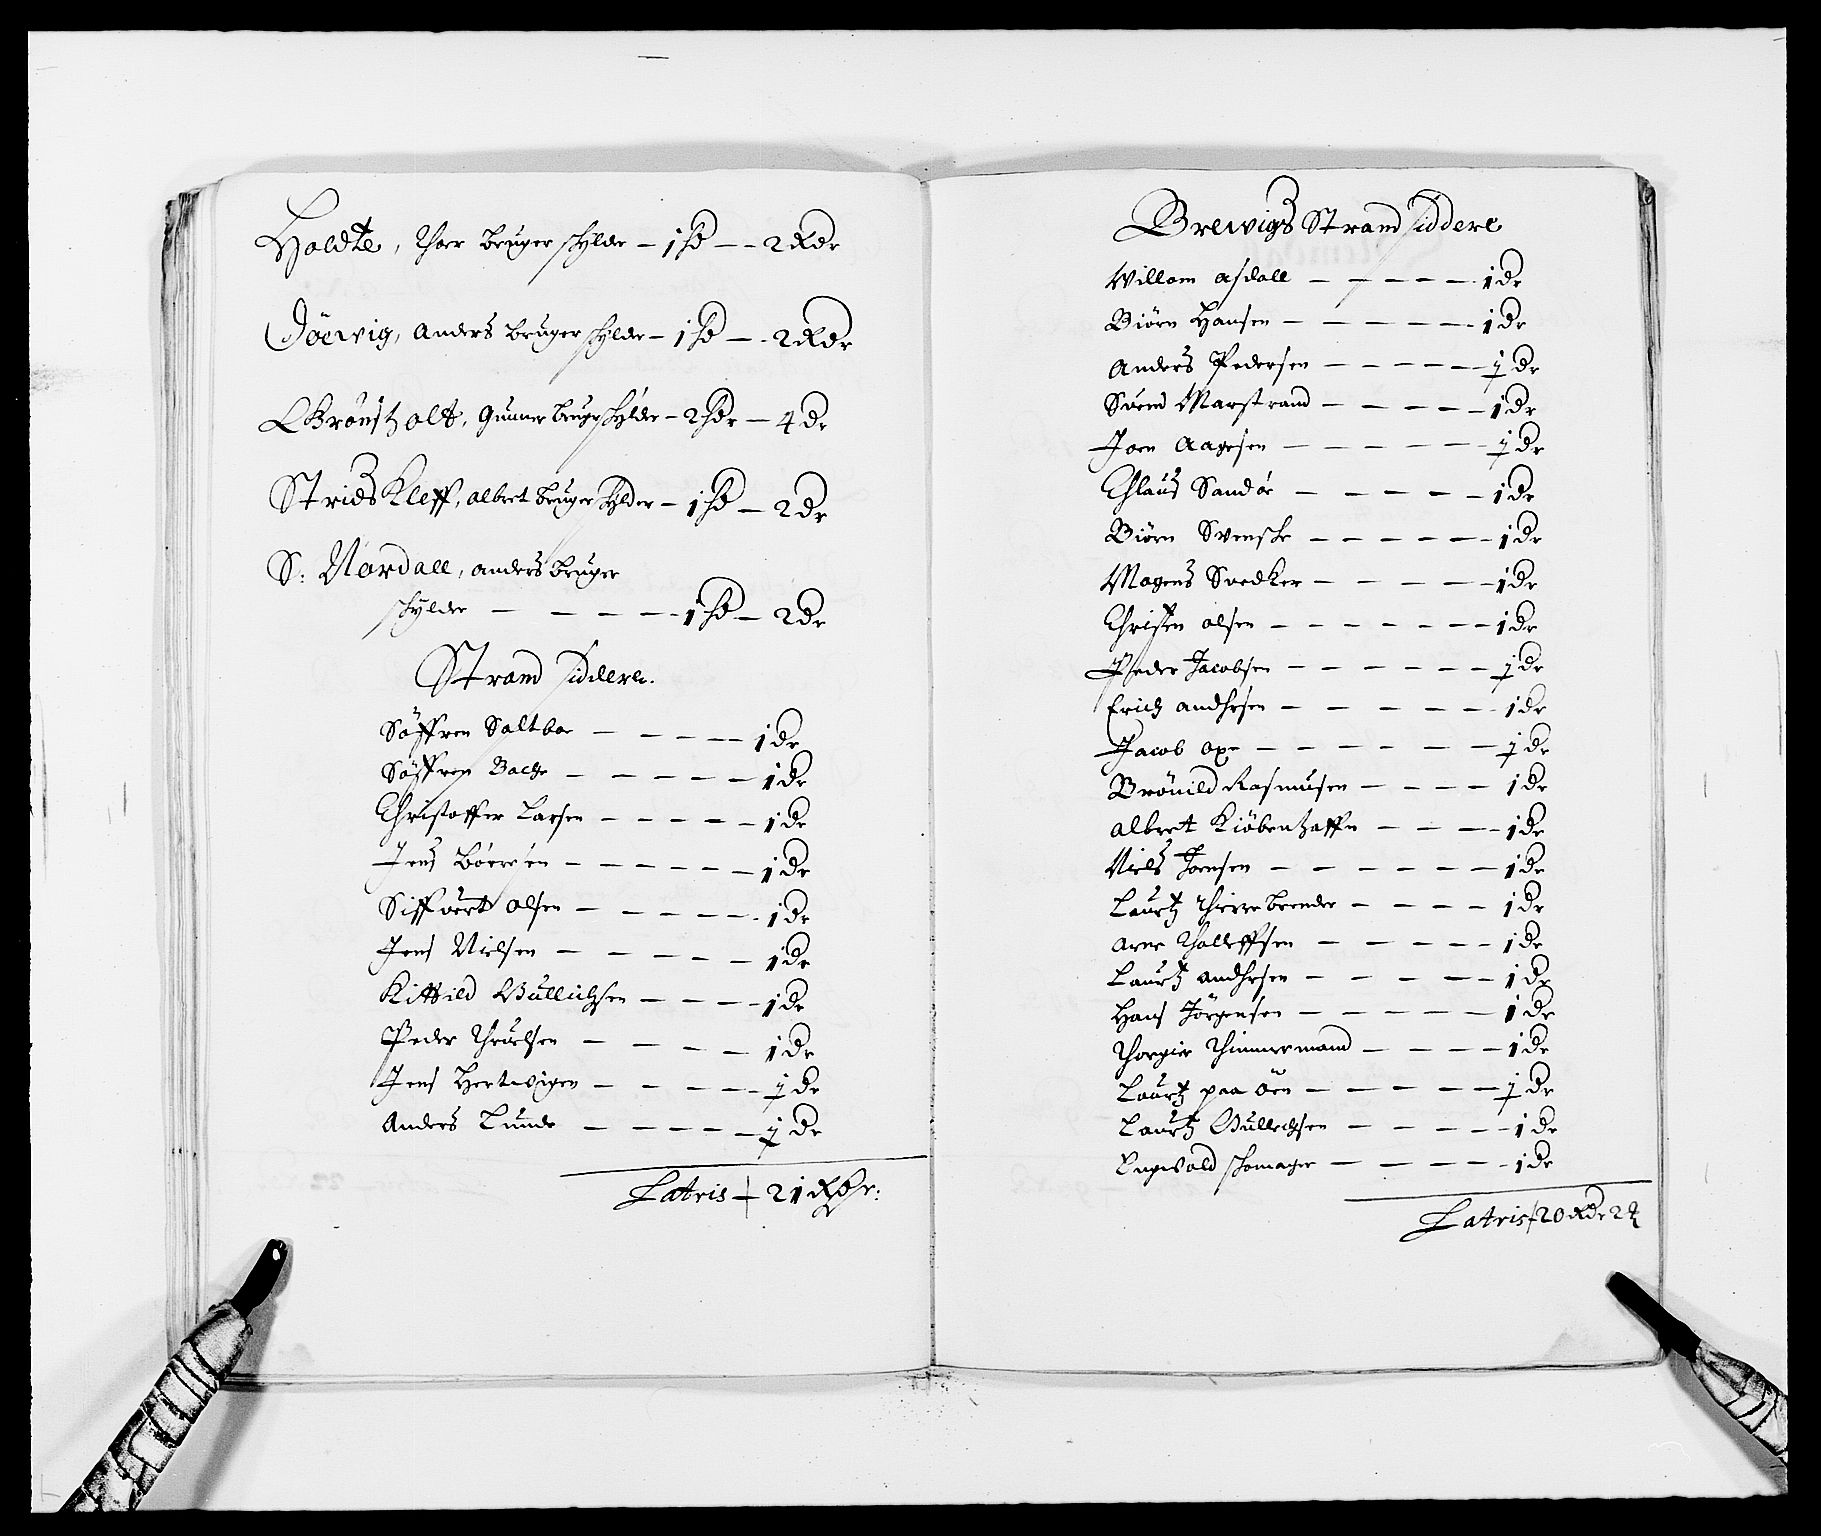 Holdte, Thor bruger skylder – 1 hd – – 2 Rdr
Döevig, Anders bruger skylder – 1 hd – – 2 Rdr
Grönsholt, Gunner bruger skylder – 2 hdr – 4 dr
Strids Kleff, albret bruger skylder – 1 hd – 2 dr
S: Nordall, anders bruger
skylder – – – – – 1 hd – 2 dr
Strand siddere.
Söffren Saltboe – – – – – 1 dr
Söffren Bache – – – – – 1 dr
Christoffer Larsen – – – – – 1 dr
Jens Böeresen – – – – – – 1 dr
Siffvert olsen – – – – – 1 dr
Jens Nielsen – – – – – 1 dr
Kittild Gullichsen – – – – 1 dr
Peder Truelsen – – – – 1 dr
Jens Hertwigen – – – – – 1 dr
Anders Lunde – – – – – 1 dr
Latris – 21 Rdr:
Brewigs Strand siddere
Willom asdall – – – – – 1 dr
Biörn Hansen – – – – – 1 dr
Anders Pedersen – – – – – 1 dr
Svend Marstrand – – – – 1 dr
Joen Aagesen – – – – – 1 dr
Claus Sandöe – – – – – 1 dr
Biörn Svenske – – – – – 1 dr
Mogens Snedker – – – – – 1 dr
Christen olsen – – – – – – 1 dr
Peder Jacobsen – – – – – – 1 dr
Erich andhersen – – – – – 1 dr
Jacob oxe – – – – – – 1 dr
Brönild Rasmusen – – – – 1 dr
albret Kiöbenhaffn – – – – 1 dr
Niels Joensen – – – – – – 1 dr
Laurtz Thierre brender – – – – 1 dr
Arne Tholleffsen – – – – – 1 dr
Laurtz andhersen – – – – – 1 dr
Hans Jörgensen – – – – – 1 dr
Thorgier Thimmermand – – – – 1 dr
Laurtz paa öen – – – – – 1 dr
Laurtz Gullichsen – – – – – 1 dr
Engwold skomager – – – – – 1 dr
Latris 20 Rdr 2